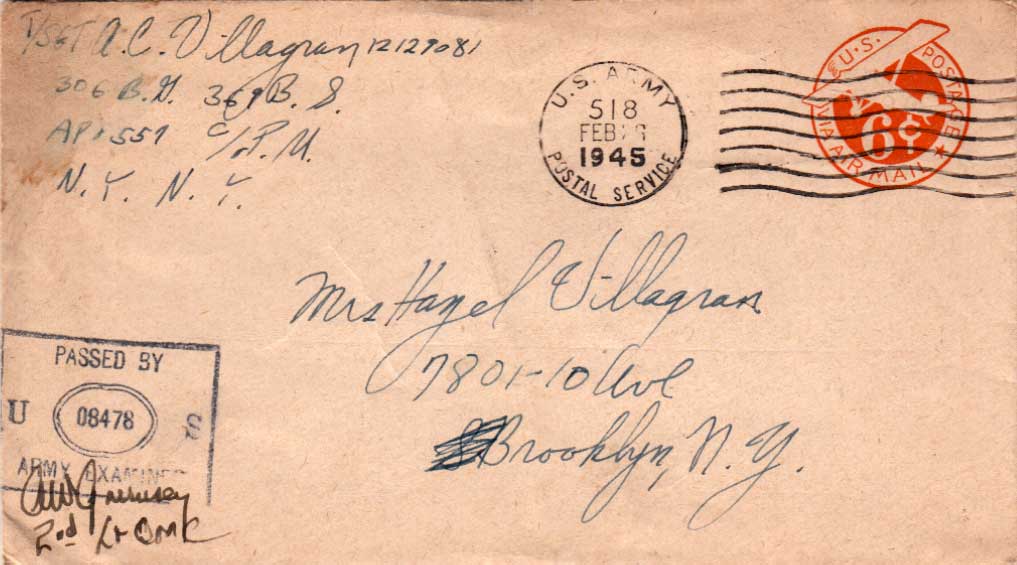 T/SGT A. C. Villagran 12129081
306 B.G. 369 B. S.
APO 557 c/o P. M.
N. Y. N. Y.
U.S. ARMY
518
FEB
1945
POSTAL SERVICE
U.S. POSTAGE
6¢
VIA AIR MAIL
Mrs Hazel Villagran
7801-10 Ave
Brooklyn, N. Y.
PASSED BY
U 08478 S
ARMY EXAMINER
2nd Lt QMC